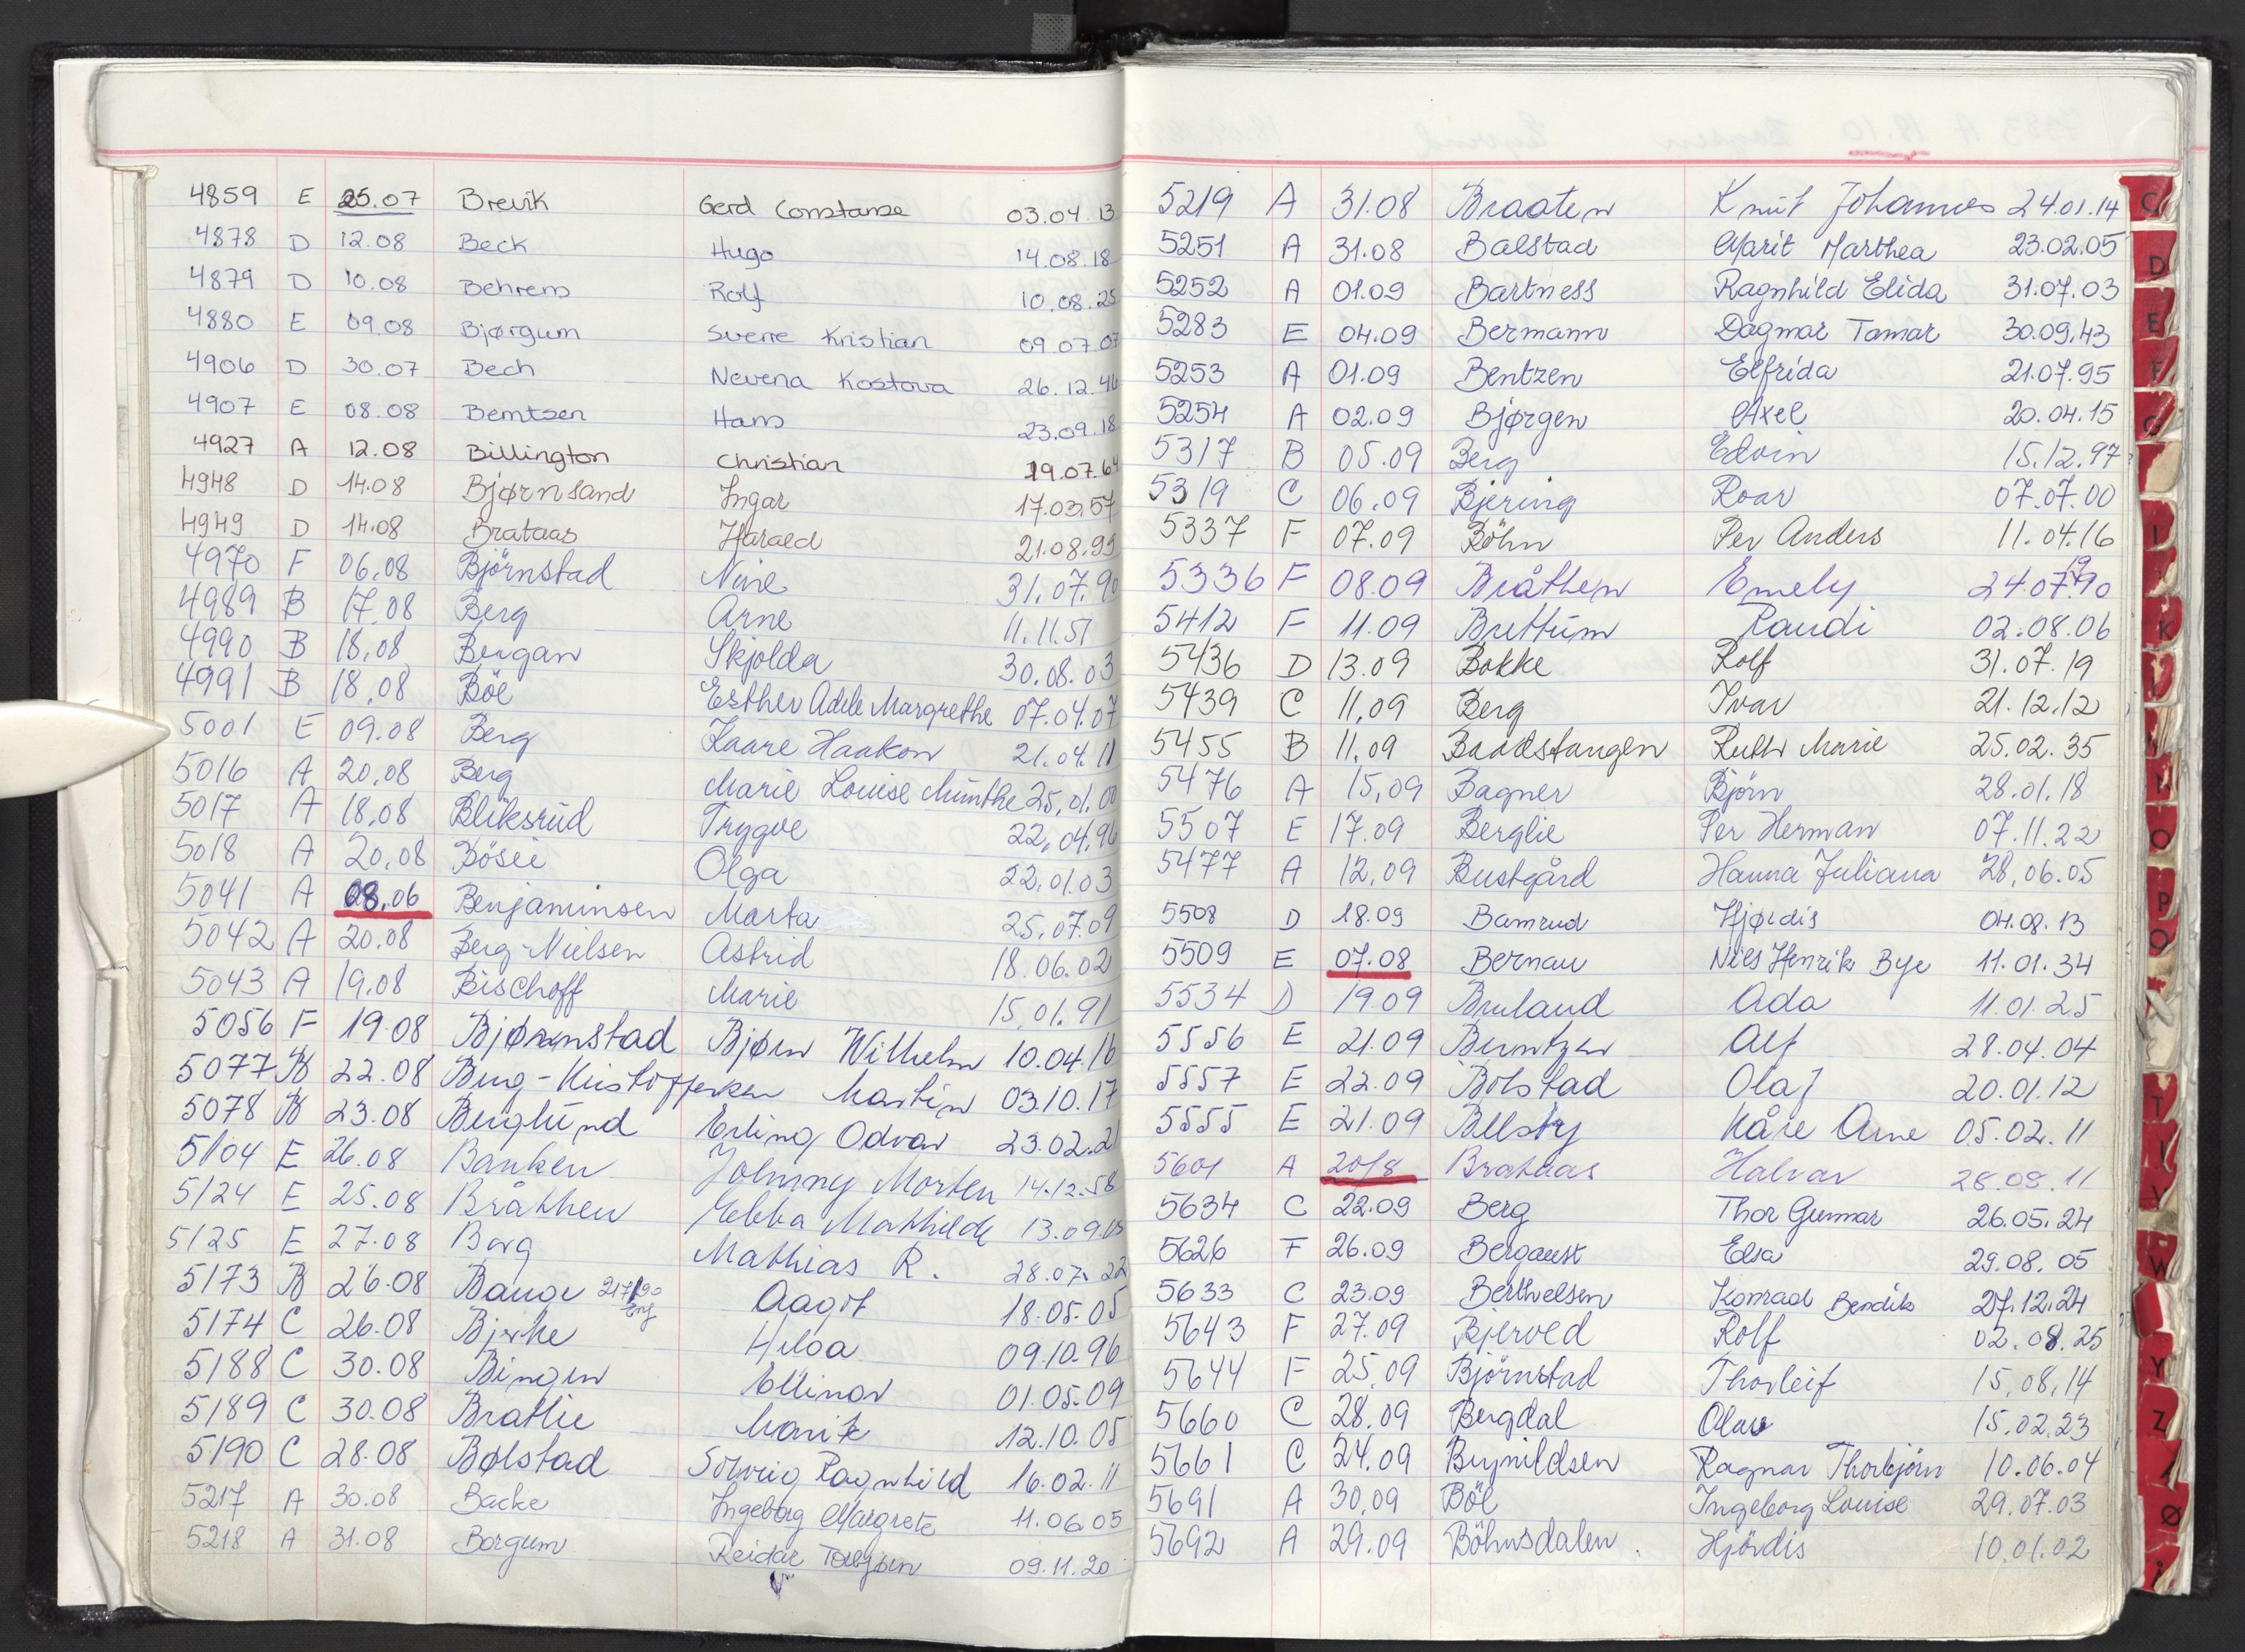 4859 E 25.07 Brevik Gerd Constanse 03.04.13
4878 D 12.08 Beck Hugo 14.08.18
4879 D 10.08 Behrens Rolf 10.08.25
4880 E 09.08 Bjørgum Sverre Kristian 09.07.07
4906 D 30.07 Bech Nevena Kostova 26.12.46
4907 E 08.08 Berntsen Hans 23.09.18
4927 A 12.08 Billington Christian 19.07.64
4948 D 14.08 Bjørnsand Ingar 17.03.57
4949 D 14.08 Brataas Harald 21.08.99
4970 F 06.08 Björnstad 31.07.90
4989 B 17.08 Berg Arne 11.11.51
4990 B 18.08 Bergan Skjolda 30.08.03
4991 B 18.08 Böe Esther Adele Margrethe 07.04.07
5001 E 09.08 Berg Kaare Haakon 21.04.11
5016 A 20.08 Berg Marie Louise Munthe 25.01.00
5017 A 18.08 Bliksrud Trygve 22.04.96
5018 A 20.08 Bösei Olga 22.01.03
5041 A 08.06 Benjaminsen Marta 25.07.09
5042 A 20.08 Berg-Nielsen Astrid 18.06.02
5043 A 19.08 Bischoff Marie 15.01.91
5056 F 19.08 Bjørnstad Bjørn Wilhelm 10.04.16
5077 B 22.08 Berg-Kristoffersen Martin 03.10.17
5078 B 23.08 Berglund Erling Odvar 23.02.21
5104 E 26.08 Banken Johnny Morten 14.12.58
5124 E 25.08 Bråthen Ebba Mathilde 13.09.05
5125 E 27.08 Borg Mathias R. 28.07.22
5173 B 26.08 Bauge Aagot 18.05.05
5174 C 26.08 Bjerke Hilda 09.10.96
5188 C 30.08 Bingen Ellinor 01.05.09
5189 C 30.08 Brattlie Marit 12.10.05
5190 C 28.08 Bølstad Solveig Ragnhild 16.02.11
5217 A 30.08 Backe Ingeborg Margrete 11.06.05
5218 A 31.08 Borgum Reidar Torbjørn 09.11.20
5219 A 31.08 Braaten Knut Johannes 24.01.14
5251 A 31.08 Balstad Marit Marthea 23.02.05
5252 A 01.09 Bartness Ragnhild Elida 31.07.03
5283 E 04.09 Bermann Dagmar Tamar 30.09.43
5253 A 01.09 Bentzen Elfrida 21.07.95
5254 A 02.09 Bjørgen Axel 20.04.15
5317 B 05.09 Berg Edvin 15.12.97
5319 C 06.09 Bjering Roar 07.07.00
5337 F 07.09 Böhn Per Anders 11.04.16
5336 F 08.09 Bråthen Emely 24.07.90
5412 F 11.09 Bruttum Randi 02.08.06
5436 D 13.09 Bakke Rolf 31.07.19
5439 C 11.09 Berg Ivar 21.12.12
5455 B 11.09 Baadstangen Ruth Marie 25.02.35
5476 A 15.09 Bagner Bjørn 28.01.18
5507 E 17.09 Berglie Per Herman 07.11.22
5477 A 12.09 Bustgård Hanna Juliana 28.06.05
5508 D 18.09 Bamrud Hjørdis 04.08.13
5509 E 07.08 Bernau Nils Henrik Bye 11.01.34
5534 D 19.09 Bruland Ada 11.01.25
5556 E 21.09 Berntzen Alf 28.04.04
5557 E 22.09 Bolstad Olaf 20.01.12
5555 E 21.09 Bellsty Kåre Arne 05.02.11
5601 A 20/8 Brataas Halvar 28.09.11
5634 C 22.09 Berg Thor Gunnar 26.05.24
5626 F 26.09 Bergaust Elsa 29.08.05
5633 C 23.09 Berthelsen Konrad Bendik 27.12.24
5643 F 27.09 Bjerved Rolf 02.08.25
5644 F 25.09 Björnstad Thorleif 15.08.14
5660 C 28.09 Bergdal Olav 15.02.23
5661 C 24.09 Brynildsen Ragnar Thorbjörn 10.06.04
5691 A 30.09 Böe Ingeborg Louise 29.07.03
5692 A 29.09 Böhnsdalen Hjördis 10.01.02
C
D
E
F
G
I
K
N
O
P
Q
T
V
W
Y
Z
Ø